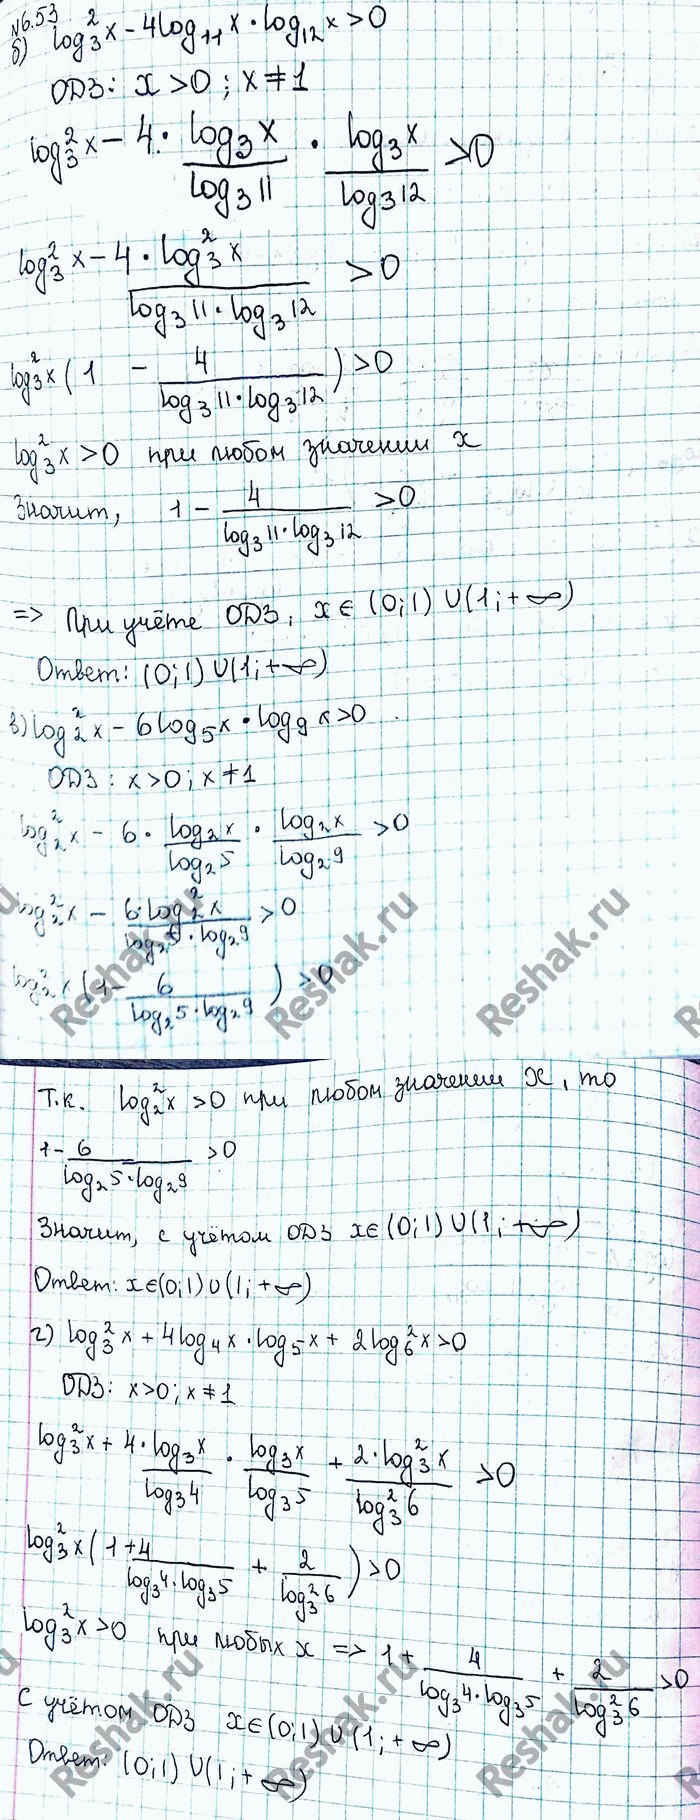 №6.53
б) log₃²x − 4log₁₁x · log₁₂x > 0
ОДЗ: x > 0 ; x ≠ 1
log₃²x − 4 · log₃x / log₃11 · log₃x / log₃12 > 0
log₃²x − 4 · log₃²x / (log₃11 · log₃12) > 0
log₃²x ( 1 − 4 / (log₃11 · log₃12) ) > 0
log₃²x > 0 при любом значении x
Значит, 1 − 4 / (log₃11 · log₃12) > 0
=> При учёте ОДЗ, x ∈ (0;1) ∪ (1;+∞)
Ответ: (0;1) ∪ (1;+∞)
в) log₂²x − 6log₅x · log₉x > 0
ОДЗ : x > 0 ; x ≠ 1
log₂²x − 6 · log₂x / log₂5 · log₂x / log₂9 > 0
log₂²x − 6·log₂²x / (log₂5 · log₂9) > 0
log₂²x ( 1 − 6 / (log₂5 · log₂9) ) > 0
Reshak.ru Reshak.ru Reshak.ru
Т.к. log₂²x > 0 при любом значении x, то
1 − 6 / (log₂5 · log₂9) > 0
Значит, с учётом ОДЗ x ∈ (0;1) ∪ (1;+∞)
Ответ: x ∈ (0;1) ∪ (1;+∞)
г) log₃²x + 4log₄x · log₅x + 2log₆²x > 0
ОДЗ: x > 0 ; x ≠ 1
log₃²x + 4·log₃x / log₃4 · log₃x / log₃5 + 2·log₃²x / log₃²6 > 0
log₃²x ( 1 + 4 / (log₃4 · log₃5) + 2 / log₃²6 ) > 0
log₃²x > 0 при любых x => 1 + 4 / (log₃4 · log₃5) + 2 / log₃²6 > 0
С учётом ОДЗ x ∈ (0;1) ∪ (1;+∞)
Ответ: (0;1) ∪ (1;+∞)
Reshak.ru Reshak.ru Reshak.ru